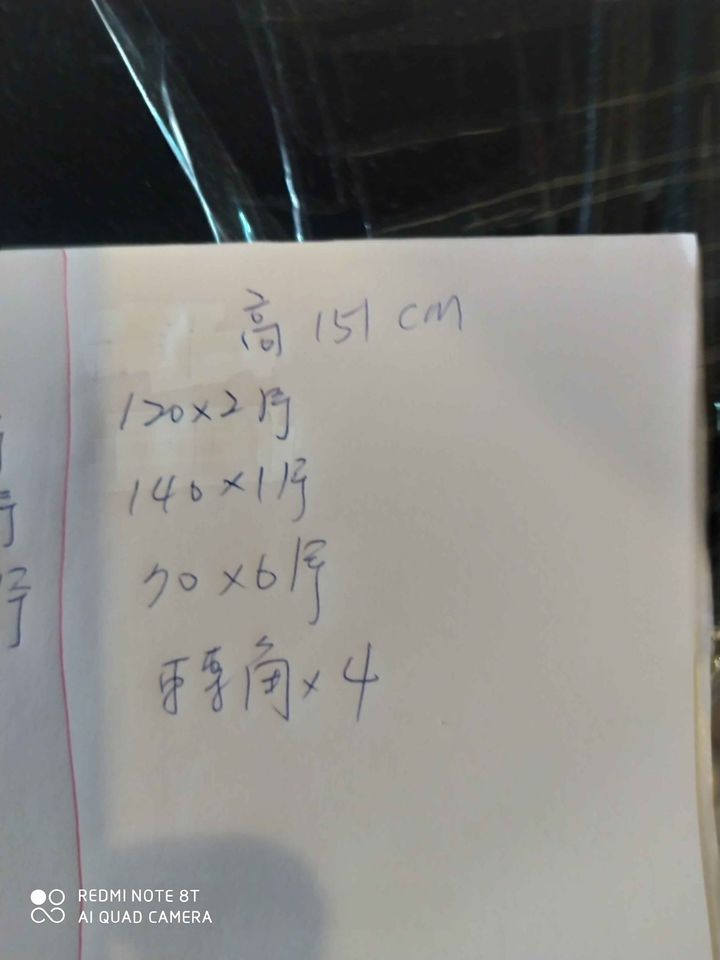 高 151 cm
120×2片
140×1片
70×6片
轉角×4
REDMI NOTE 8T
AI QUAD CAMERA